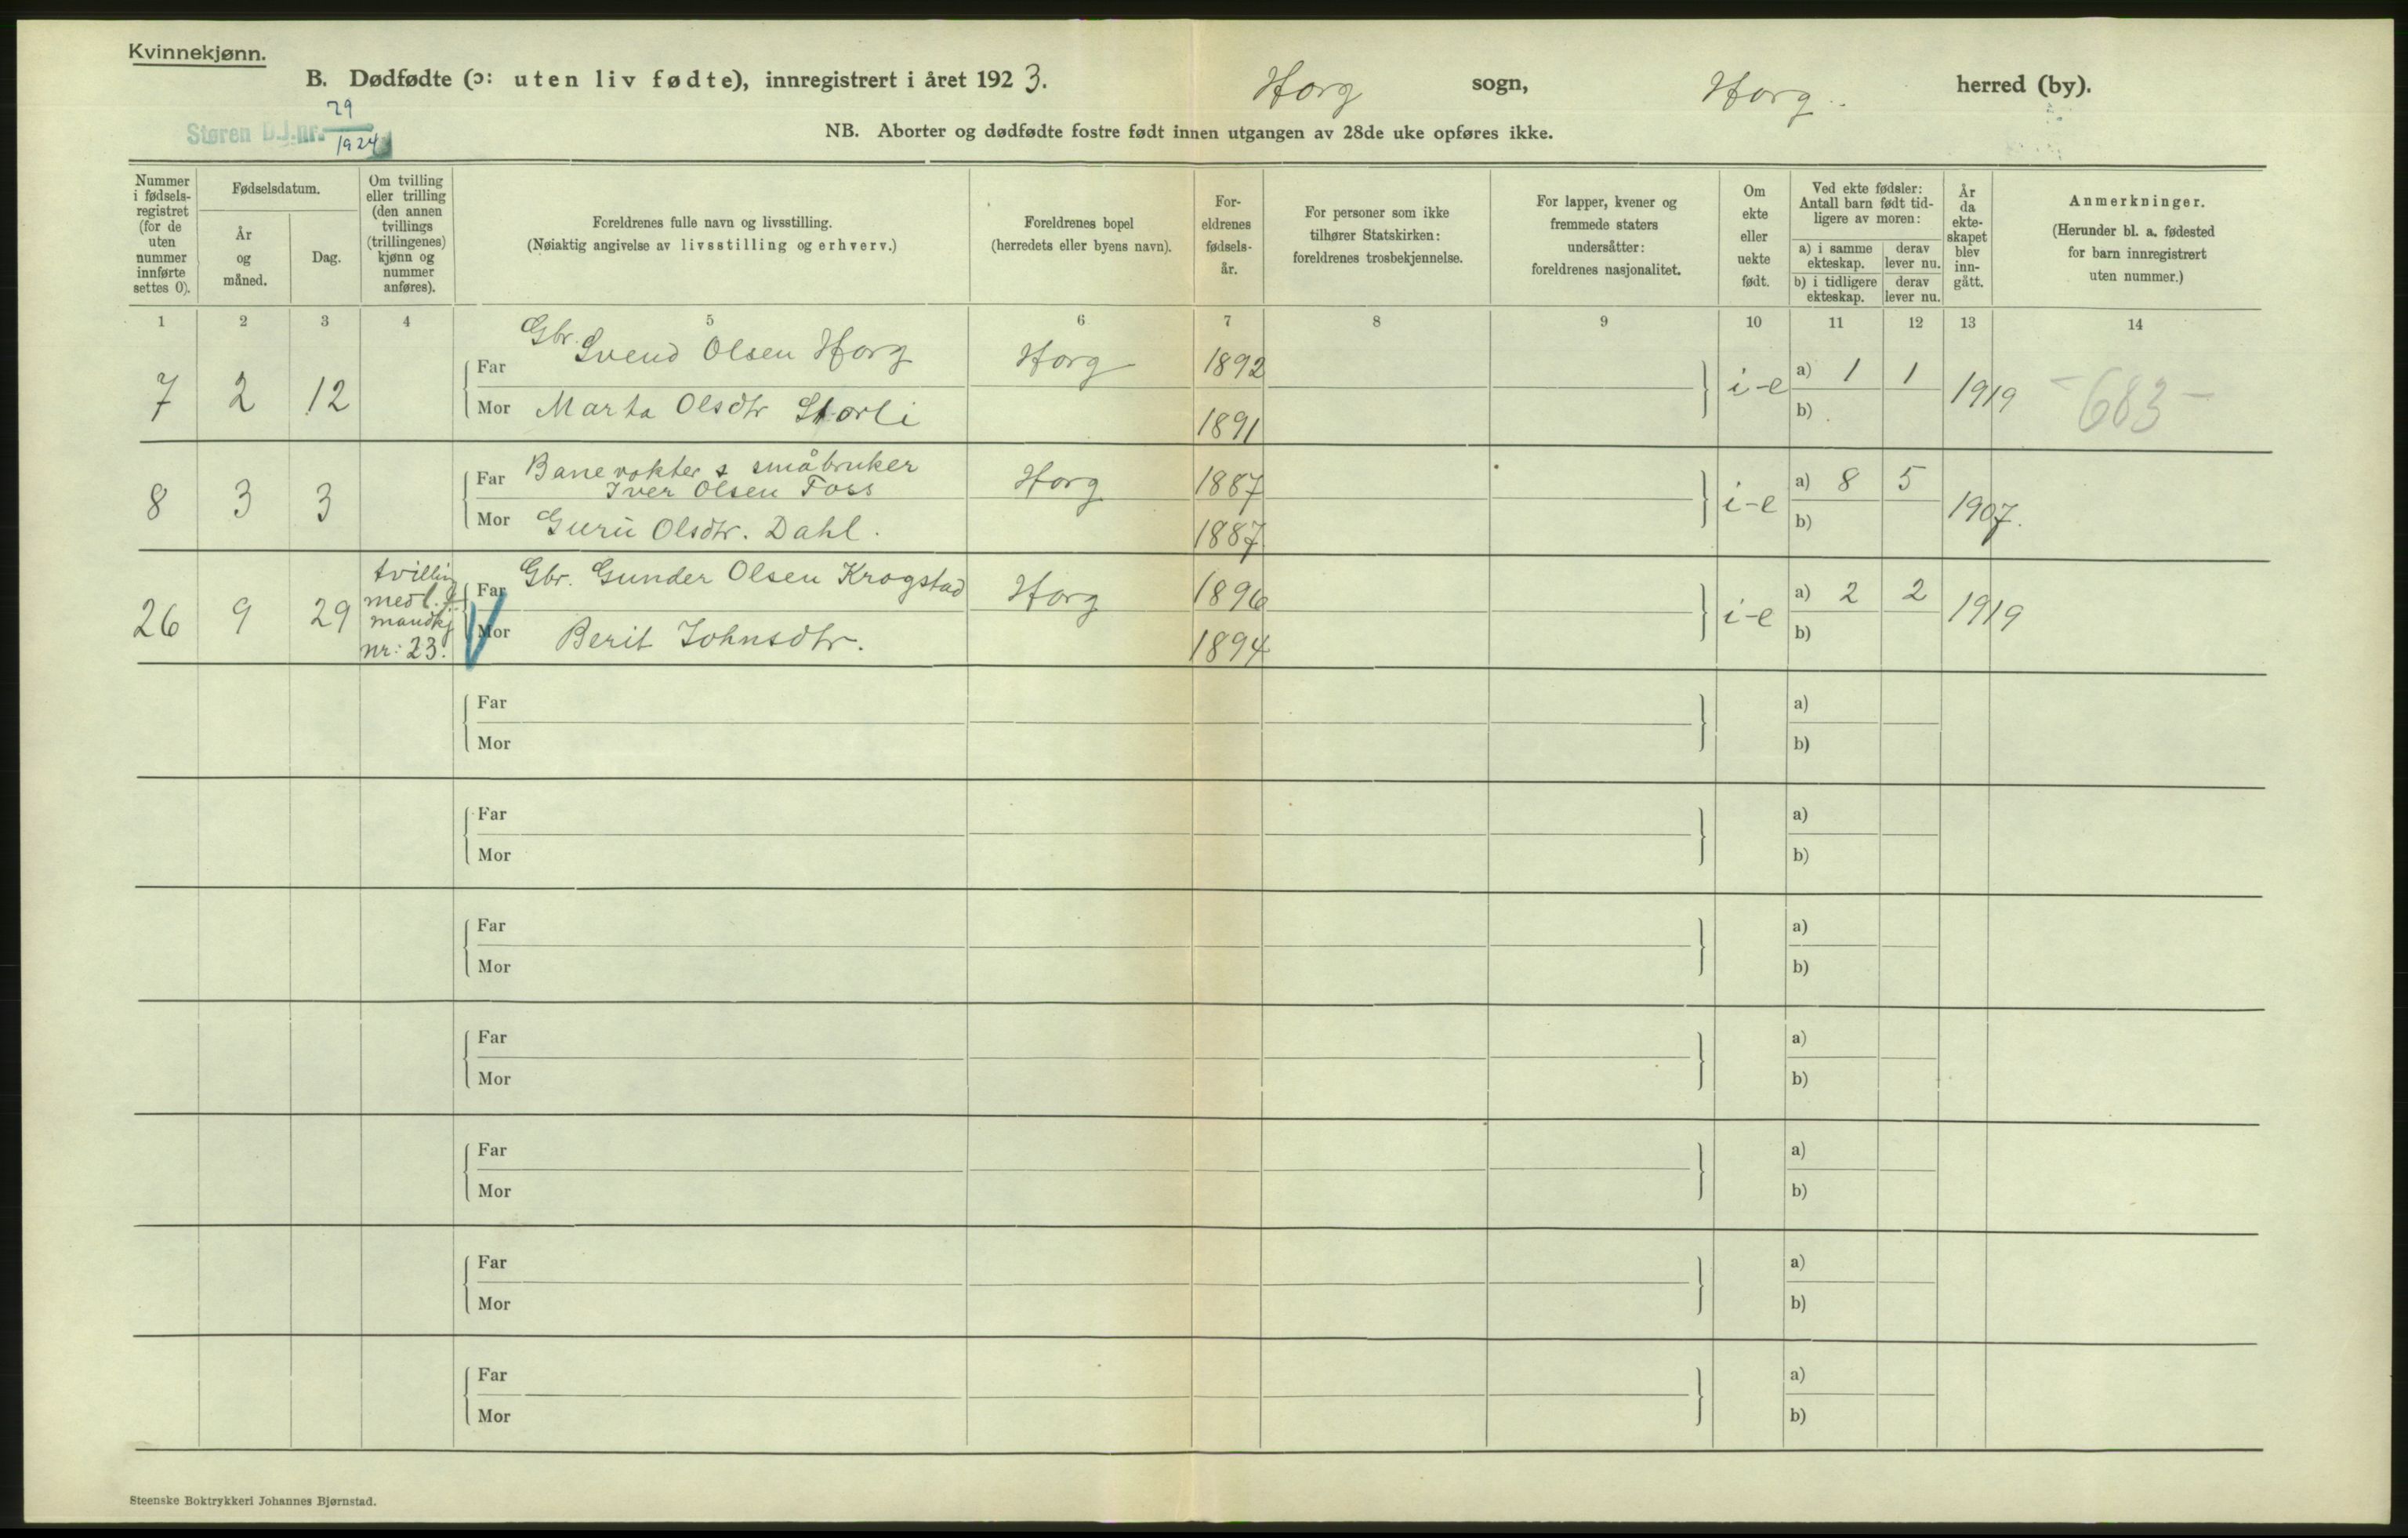 Kvinnekjønn.
B. Dødfødte (ɔ: uten liv fødte), innregistrert i året 1923. Horg sogn, Horg herred (by).
Støren D.J.nr. 29/1924
NB. Aborter og dødfødte fostre født innen utgangen av 28de uke opføres ikke.
Nummer i fødsels-registret (for de uten nummer innførte settes 0).
Fødselsdatum.
År og måned.
Dag.
Om tvilling eller trilling (den annen tvillings (trillingenes) kjønn og nummer anføres).
Foreldrenes fulle navn og livsstilling.
(Nøiaktig angivelse av livsstilling og erhverv.)
Foreldrenes bopel
(herredets eller byens navn).
For-eldrenes fødsels-år.
For personer som ikke tilhører Statskirken: foreldrenes trosbekjennelse.
For lapper, kvener og fremmede staters undersåtter: foreldrenes nasjonalitet.
Om ekte eller uekte født.
Ved ekte fødsler: Antall barn født tid-ligere av moren:
a) i samme ekteskap. derav lever nu.
b) i tidligere ekteskap. derav lever nu.
År da ekte-skapet blev inn-gått.
Anmerkninger.
(Herunder bl. a. fødested for barn innregistrert uten nummer.)
1 2 3 4 5 6 7 8 9 10 11 12 13 14
7 2 12 Far Gbr. Svend Olsen Horg Horg 1892 i-e a) 1 1 1919 -683-
Mor Marta Olsdtr Storli 1891 b)
8 3 3 Far Banevokter & småbruker
Iver Olsen Foss Horg 1887 i-e a) 8 5 1907.
Mor Guru Olsdtr. Dahl. 1887 b)
26 9 29 tvilling med l. f. mandkj nr: 23. Far Gbr. Gunder Olsen Krogstad Horg 1896 i-e a) 2 2 1919
Mor Berit Johnsdtr. 1894 b)
Far a)
Mor b)
Far a)
Mor b)
Far a)
Mor b)
Far a)
Mor b)
Far a)
Mor b)
Far a)
Mor b)
Far a)
Mor b)
Steenske Boktrykkeri Johannes Bjørnstad.